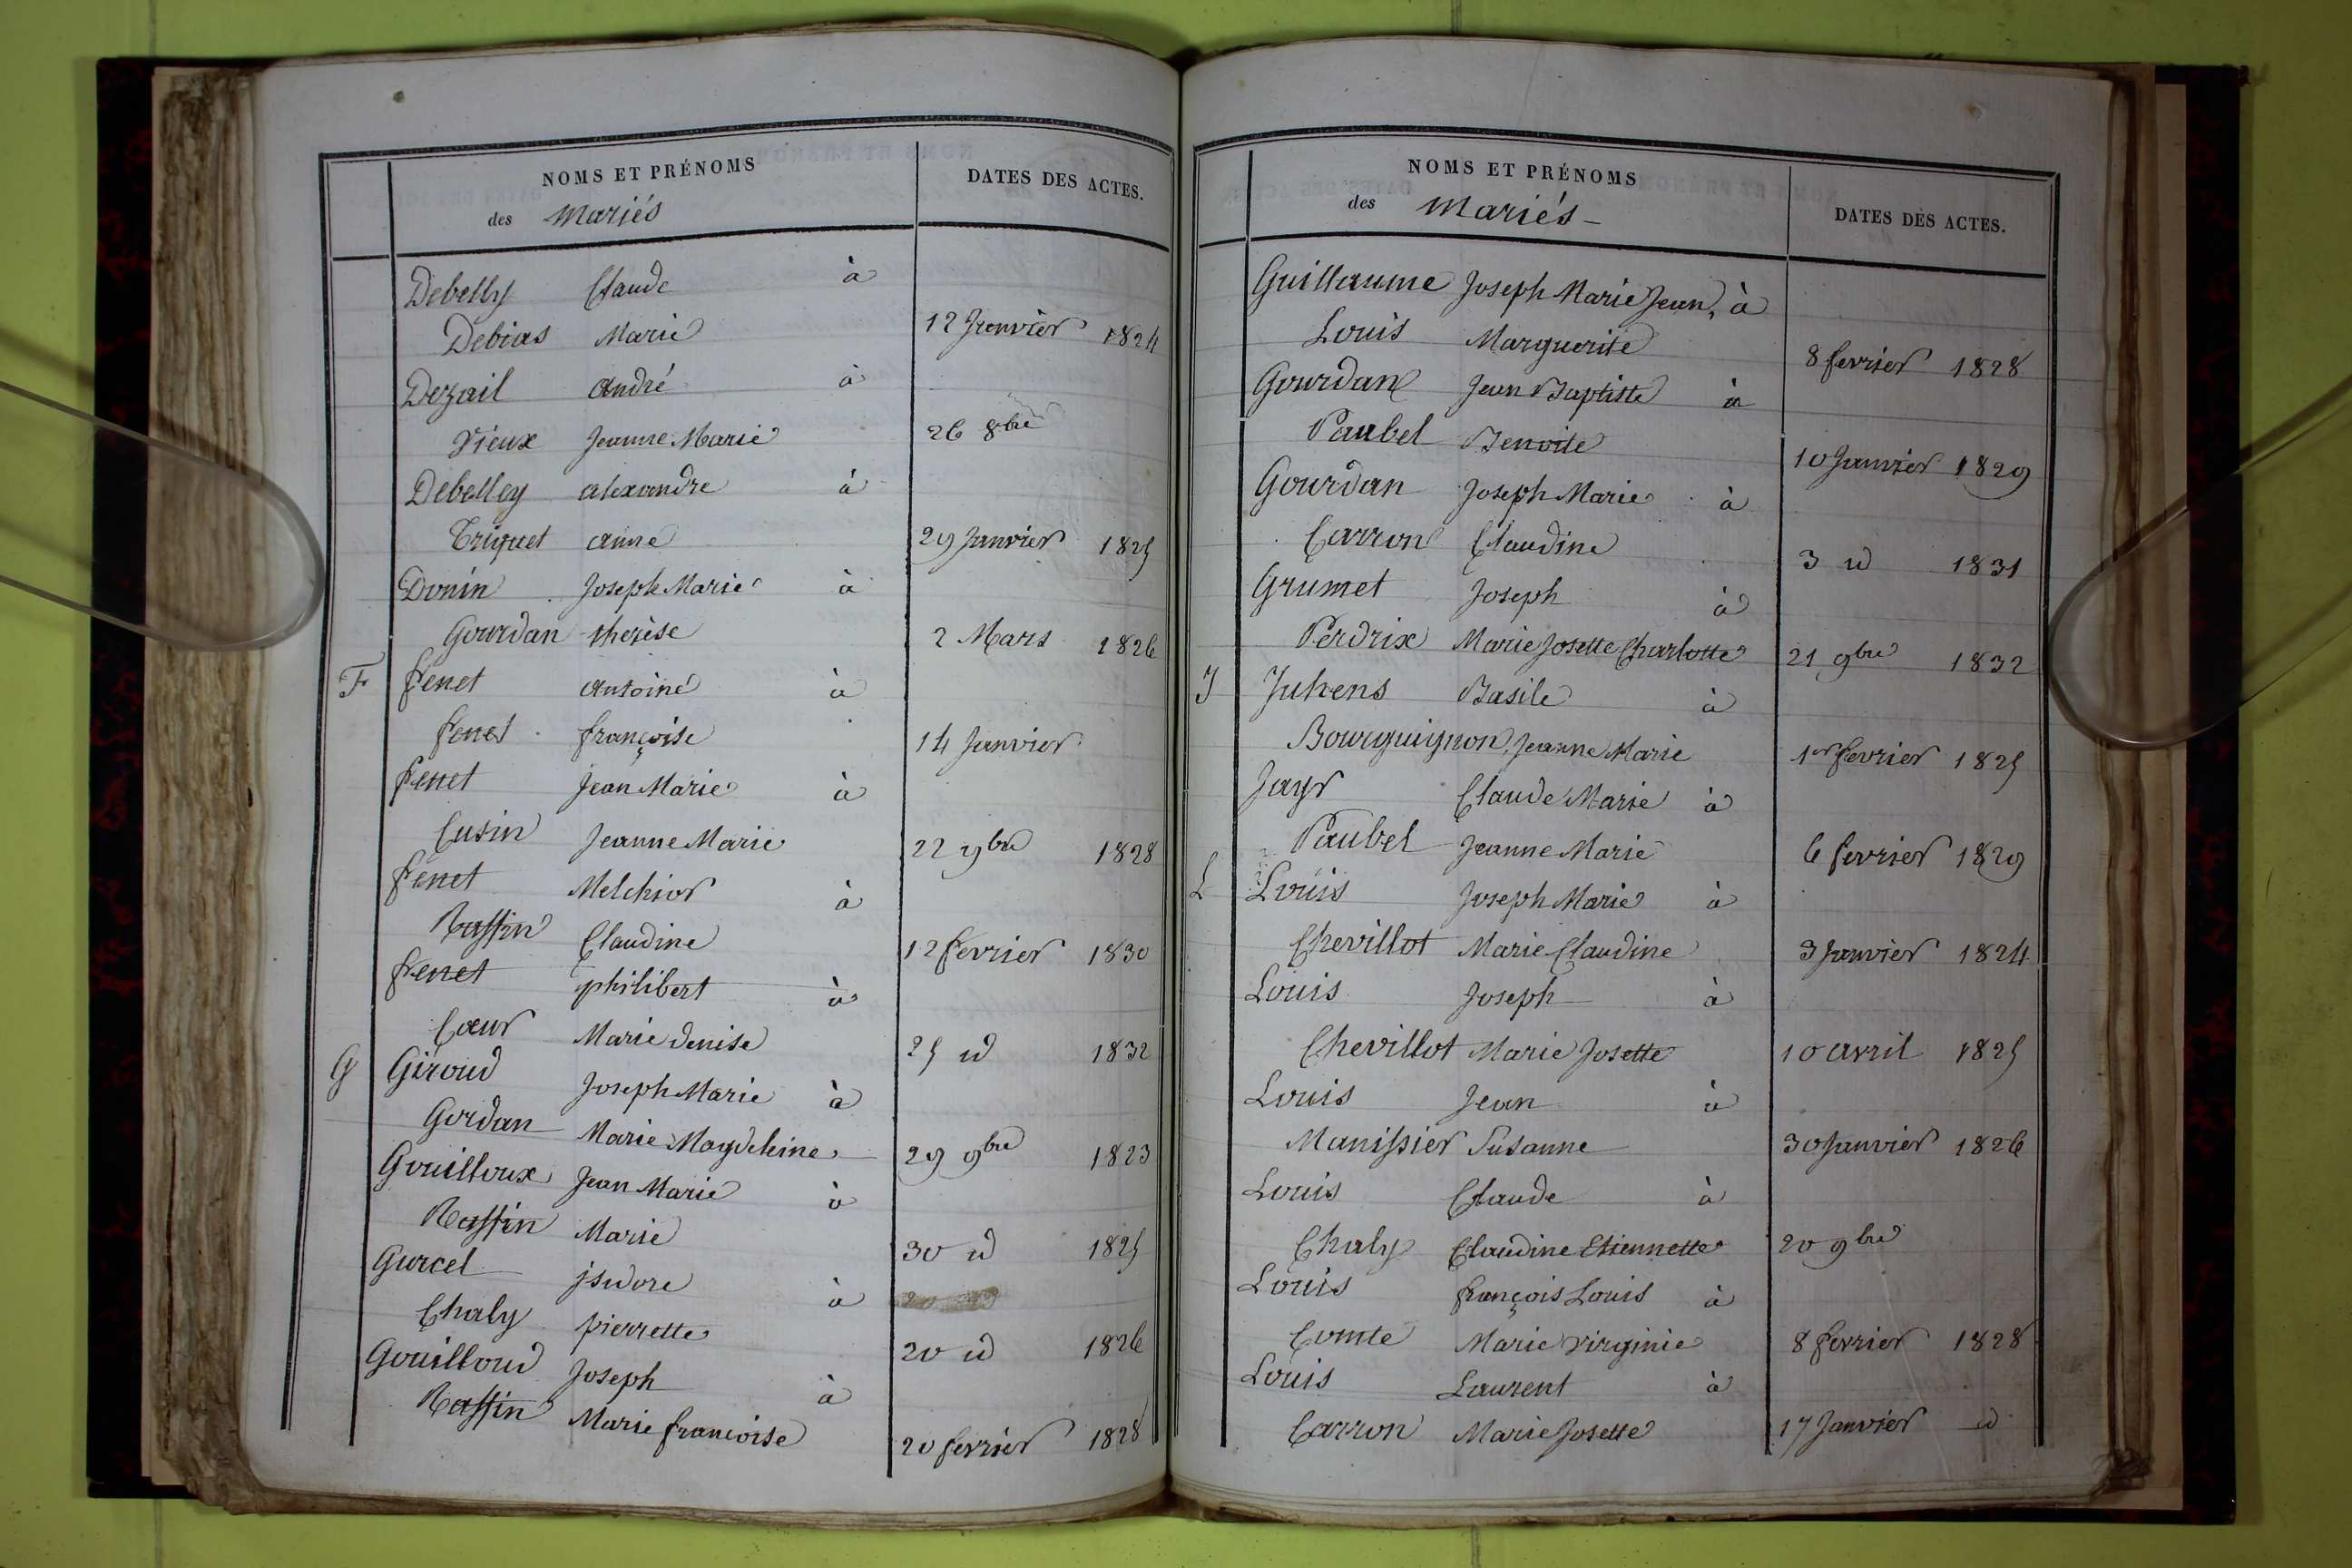 NOMS ET PRÉNOMS
des Mariés
DATES DES ACTES.
Debelly Claude à
Debias Marie 12 Janvier 1824
Dezail André à
Vieux Jeanne Marie 26 8bre
Debelley alexandre à
Triquet anne 29 Janvier 1825
Donin Joseph Marie à
Gourdan therèse 2 Mars 1826
F fenet Antoine à
fenet françoise 14 Janvier
fenet Jean Marie à
Cusin Jeanne Marie 22 9bre 1828
fenet Melchior à
Rassin Claudine 12 fevrier 1830
fenet philibert à
Cœur Marie denise 25 id 1832
G Giroud Joseph Marie à
Gordan Marie Magdeleine 29 9bre 1823
Gouilloux Jean Marie à
Rassin Marie 30 id 1825
Gurcel jsidore à
Chaly pierrette 20 id 1826
Gouilloud Joseph à
Rassin Marie francoise 20 fevrier 1828
NOMS ET PRÉNOMS
des Mariés
DATES DES ACTES.
Guillaume Joseph Marie Jean, à
Louis Marguerite 8 fevrier 1828
Gourdan Jean Baptiste à
Paubel Benoite 10 Janvier 1829
Gourdan Joseph Marie à
Carron Claudine 3 id 1831
Grumet Joseph à
Perdrix Marie Josette Charlotte 21 9bre 1832
J Juhens Basile à
Bourguignon, Jeanne Marie 1er fevrier 1825
Jayr Claude Marie à
Paubel Jeanne Marie 6 fevrier 1829
L Louis Joseph Marie à
Chevillot Marie Claudine 3 Janvier 1824
Louis Joseph à
Chevillot Marie Josette 10 avril 1825
Louis Jean à
Manissier Susanne 30 Janvier 1826
Louis Claude à
Chaly Claudine Etiennette 20 9bre
Louis françois Louis à
Comte Marie virginie 8 fevrier 1828
Louis Laurent à
Carron Marie Josette 17 Janvier id